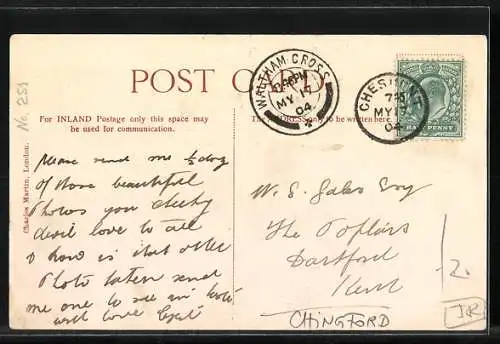 POST CARD
WALTHAM·CROSS
MY 17
04
CHESHUNT
MY 17
04
HALFPENNY
For INLAND Postage only this space may
be used for communication.
The ADDRESS only to be written here.
No. 251
Charles Martin, London.
Please send me ½ doz
of those beautiful
Photos you cheeky
devil love to all
& how is that other
Photo taken send
me one to see
with love
W. S. Gales Esq
The Poplars
Dartford
Kent
CHINGFORD
2.
JR